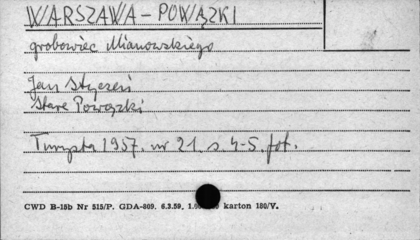 WARSZAWA – POWĄZKI
grobowiec Mianowskiego
Jan Styczeń
Stare Powązki
Turysta 1957. nr 21. s. 4-5. fot.
CWD B-15b Nr 515/P. GDA-809. 6.3.59. karton 180/V.